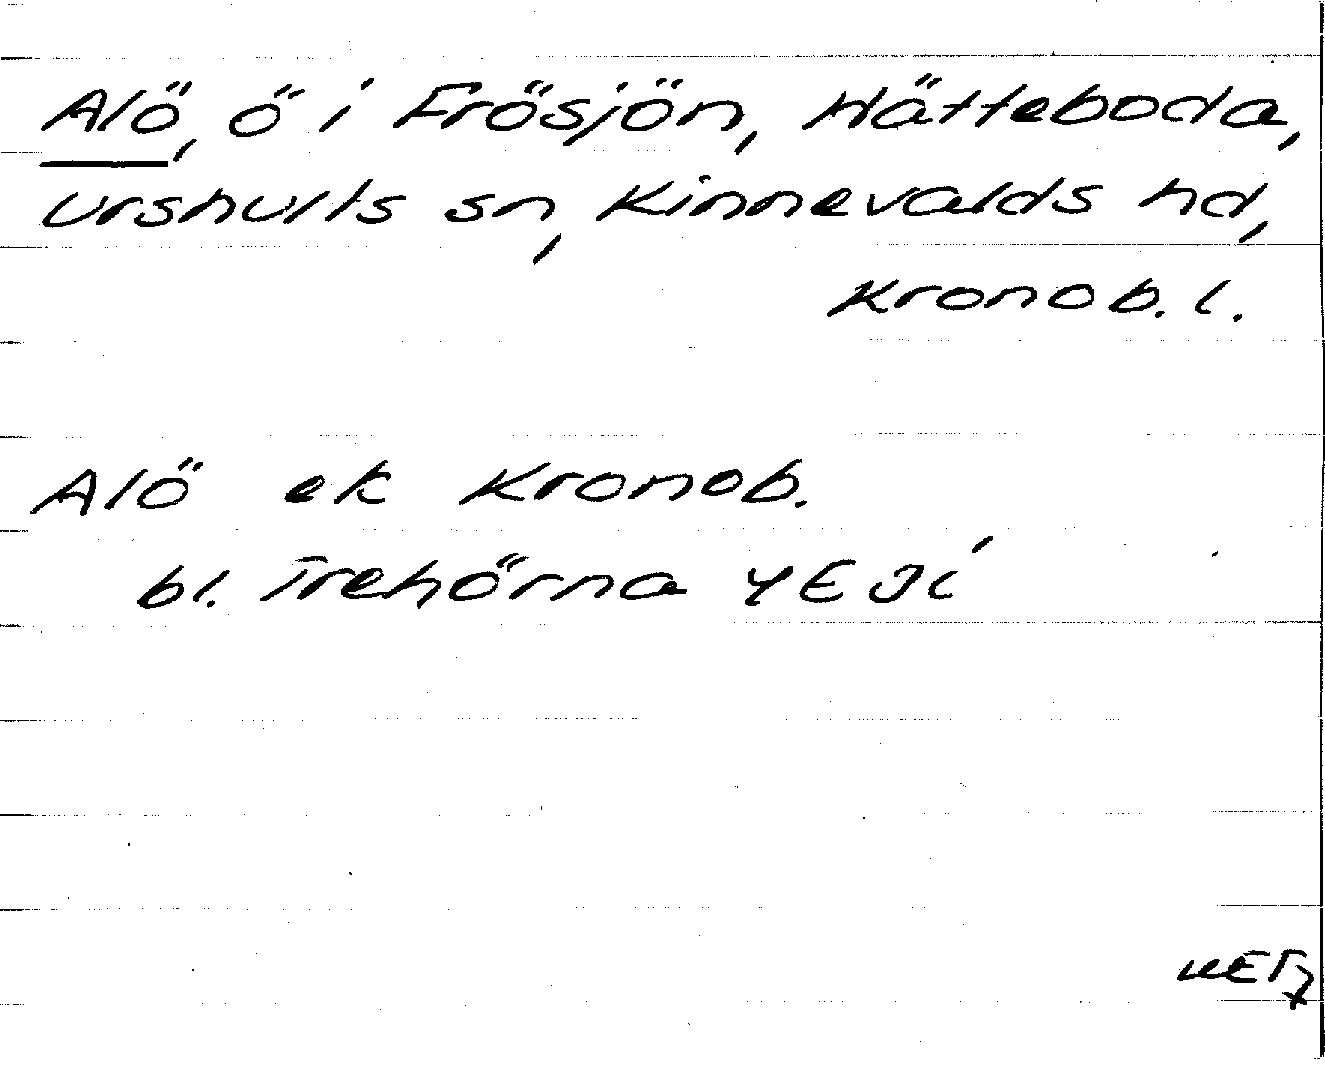 Alö, ö i Frösjön, Hätteboda,
Urshults sn, Kinnevalds hd,
Kronob. l.
Alö ek Kronob.
bl. Trehörna 4E